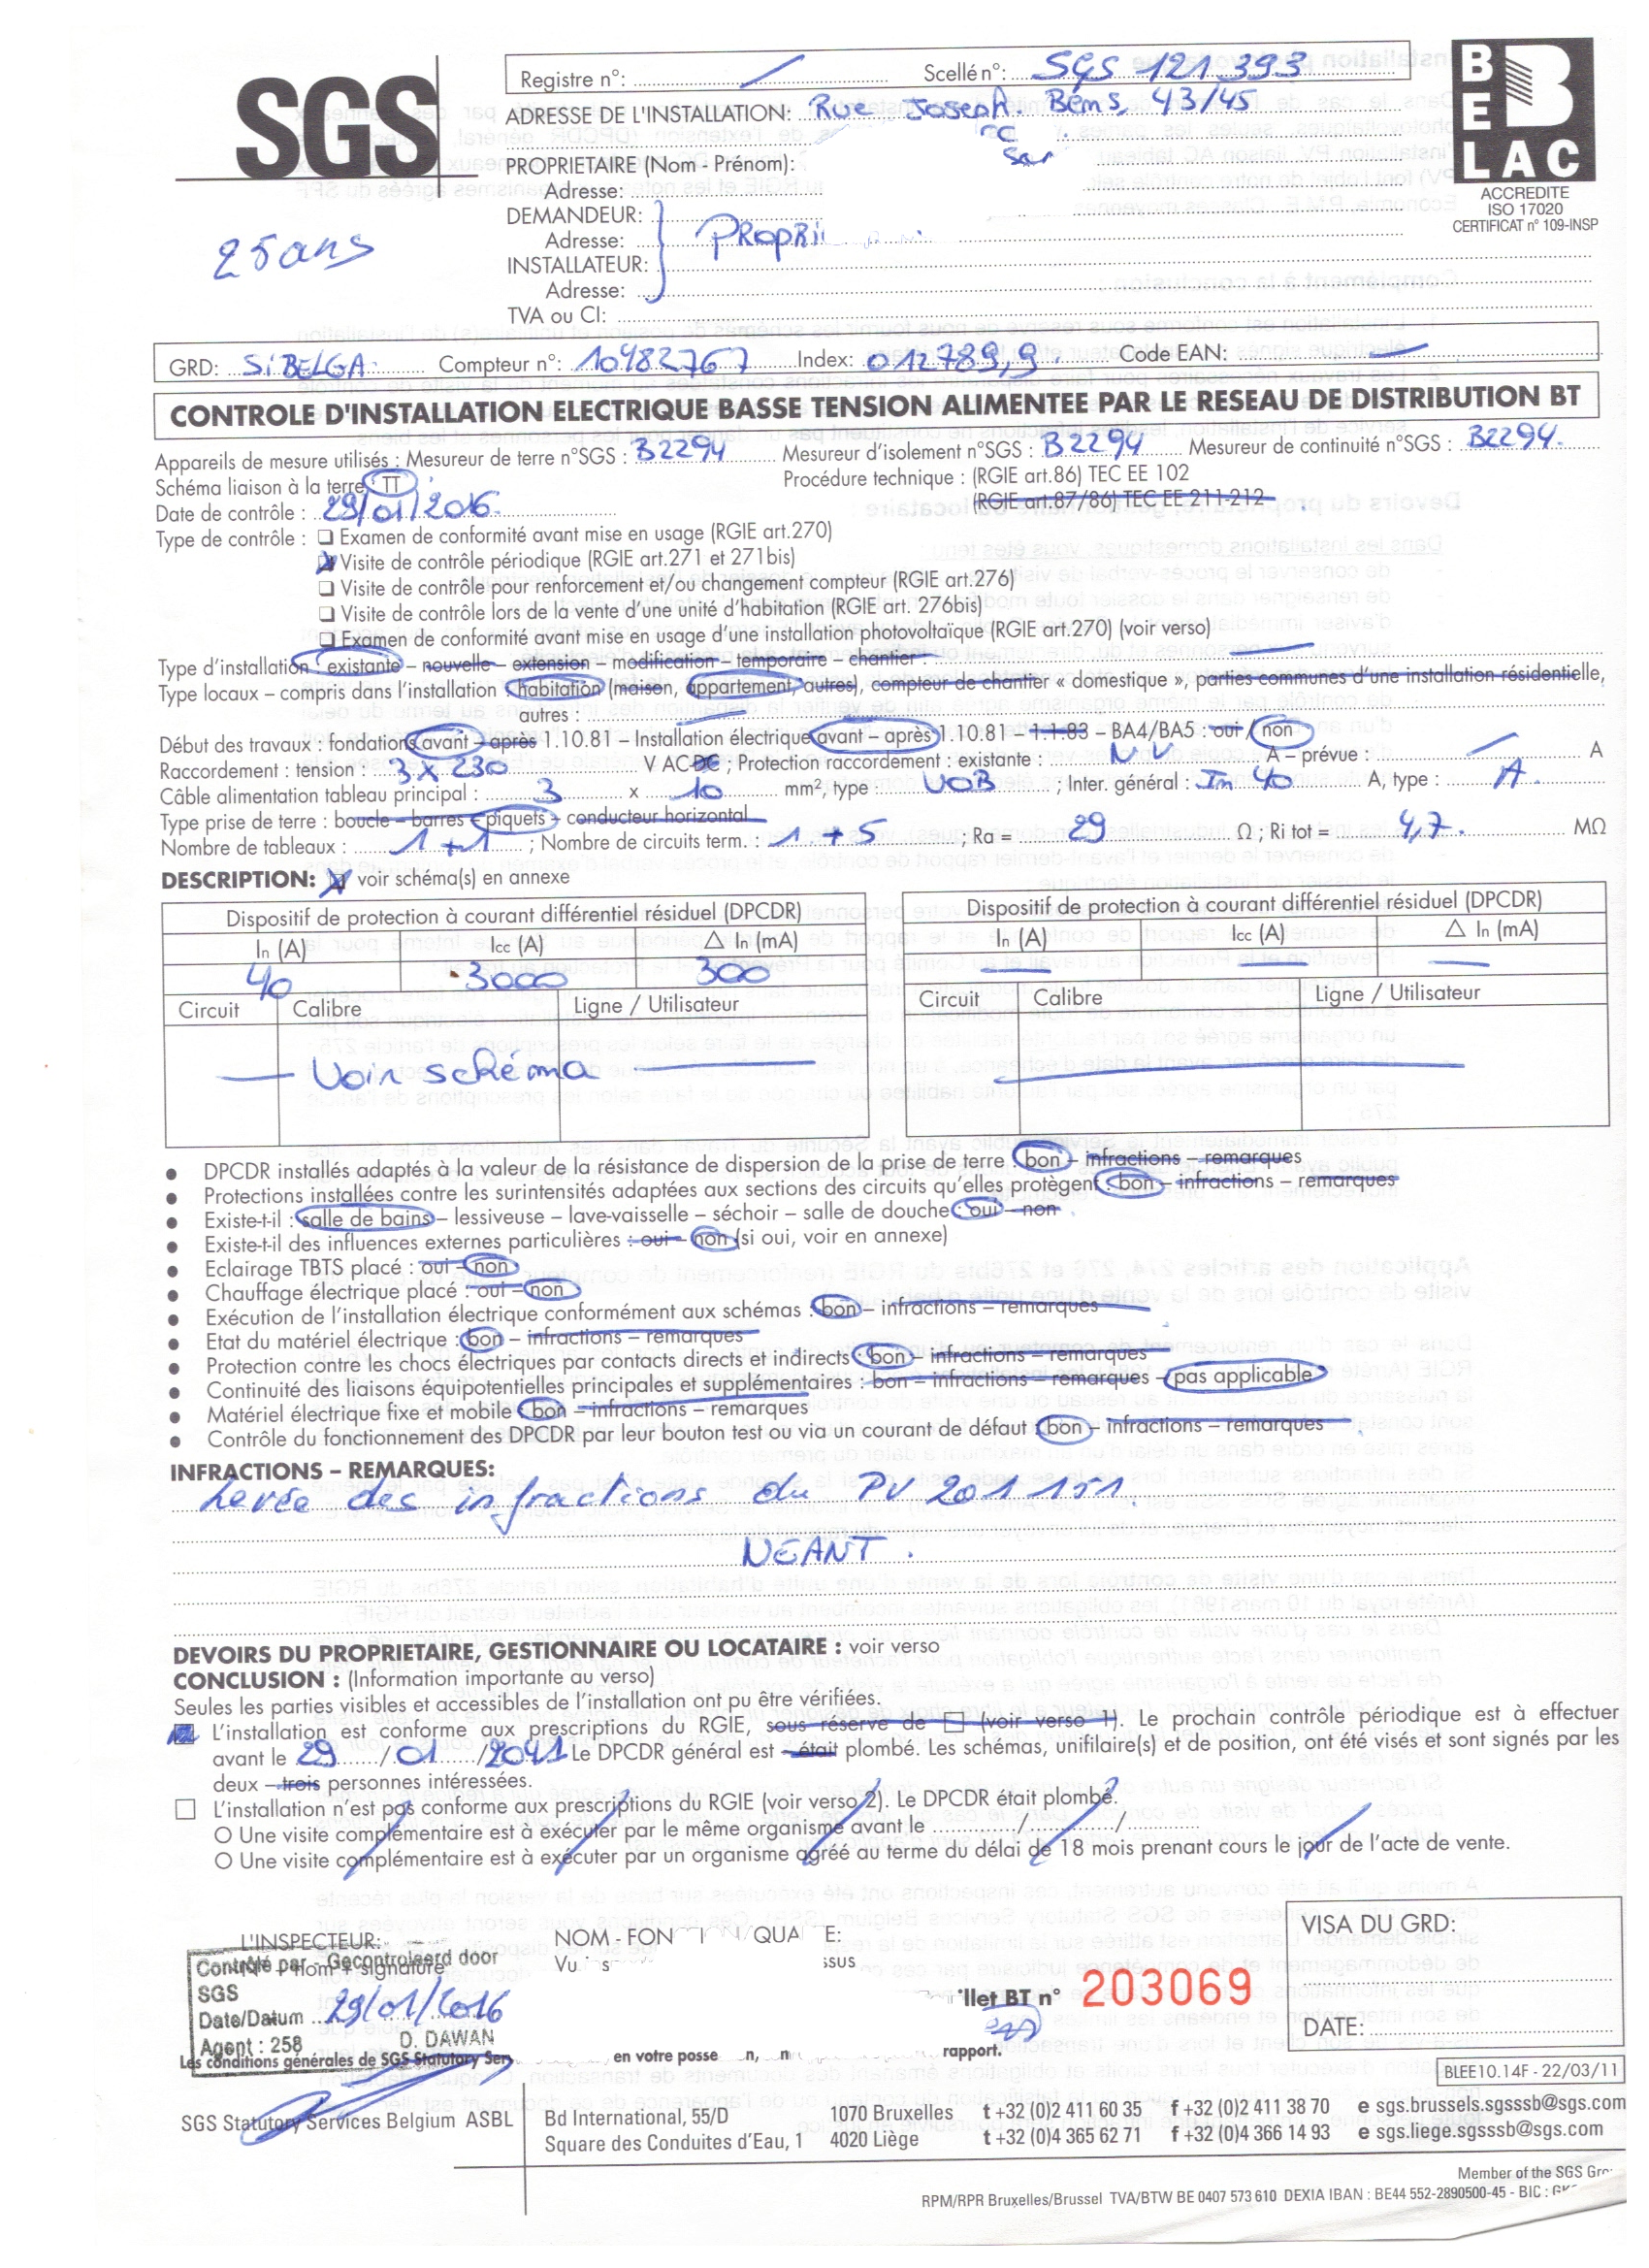 SGS
Registre n°: Scellé n°: SGS 121.393
ADRESSE DE L'INSTALLATION: Rue Joseph. Bens, 43/45
PROPRIETAIRE (Nom - Prénom):
Adresse:
DEMANDEUR:
Adresse: PROPRI
INSTALLATEUR:
Adresse:
TVA ou CI:
25 ans
BELAC
ACCREDITE
ISO 17020
CERTIFICAT n° 109-INSP
GRD: SiBELGA Compteur n°: 10482767 Index: 012789,9 Code EAN: —
CONTROLE D'INSTALLATION ELECTRIQUE BASSE TENSION ALIMENTEE PAR LE RESEAU DE DISTRIBUTION BT
Appareils de mesure utilisés : Mesureur de terre n°SGS : B2294 Mesureur d'isolement n°SGS : B2294 Mesureur de continuité n°SGS : B2294.
Schéma liaison à la terre TT Procédure technique : (RGIE art.86) TEC EE 102
(RGIE art.87/86) TEC EE 211-212
Date de contrôle : 29/01/2016.
Type de contrôle : ❑ Examen de conformité avant mise en usage (RGIE art.270)
Visite de contrôle périodique (RGIE art.271 et 271bis)
❑ Visite de contrôle pour renforcement et/ou changement compteur (RGIE art.276)
❑ Visite de contrôle lors de la vente d'une unité d'habitation (RGIE art. 276bis)
❑ Examen de conformité avant mise en usage d'une installation photovoltaïque (RGIE art.270) (voir verso)
Type d'installation existante – nouvelle – extension – modification – temporaire – chantier :
Type locaux – compris dans l'installation habitation (maison, appartement, autres), compteur de chantier « domestique », parties communes d'une installation résidentielle,
autres :
Début des travaux : fondations avant – après 1.10.81 – Installation électrique avant – après 1.10.81 – 1.1.83 – BA4/BA5 : oui / non
Raccordement : tension : 3 x 230 V AC-DC ; Protection raccordement : existante : NV A – prévue : — A
Câble alimentation tableau principal : 3 x 10 mm², type : VOB ; Inter. général : In 40 A, type : A
Type prise de terre : boucle – barres – piquets – conducteur horizontal
Nombre de tableaux : 1 + 1 ; Nombre de circuits term. : 1 + 5 ; Ra = 29 Ω ; Ri tot = 4,7. MΩ
DESCRIPTION: voir schéma(s) en annexe
Dispositif de protection à courant différentiel résiduel (DPCDR) Dispositif de protection à courant différentiel résiduel (DPCDR)
In (A) Icc (A) △ In (mA) In (A) Icc (A) △ In (mA)
40 3000 300 — — —
Circuit Calibre Ligne / Utilisateur Circuit Calibre Ligne / Utilisateur
— Voir schéma —
● DPCDR installés adaptés à la valeur de la résistance de dispersion de la prise de terre bon – infractions – remarques
● Protections installées contre les surintensités adaptées aux sections des circuits qu'elles protègent : bon – infractions – remarques
● Existe-t-il : salle de bains – lessiveuse – lave-vaisselle – séchoir – salle de douche : oui – non
● Existe-t-il des influences externes particulières : oui – non (si oui, voir en annexe)
● Eclairage TBTS placé : oui – non
● Chauffage électrique placé : oui – non
● Exécution de l'installation électrique conformément aux schémas : bon – infractions – remarques
● Etat du matériel électrique : bon – infractions – remarques
● Protection contre les chocs électriques par contacts directs et indirects : bon – infractions – remarques
● Continuité des liaisons équipotentielles principales et supplémentaires : bon – infractions – remarques – pas applicable
● Matériel électrique fixe et mobile : bon – infractions – remarques
● Contrôle du fonctionnement des DPCDR par leur bouton test ou via un courant de défaut : bon – infractions – remarques
INFRACTIONS – REMARQUES:
Levée des infractions du PV 201 151.
NEANT.
DEVOIRS DU PROPRIETAIRE, GESTIONNAIRE OU LOCATAIRE : voir verso
CONCLUSION : (Information importante au verso)
Seules les parties visibles et accessibles de l'installation ont pu être vérifiées.
L'installation est conforme aux prescriptions du RGIE, sous réserve de ☐ (voir verso 1). Le prochain contrôle périodique est à effectuer
avant le 29/01/2041 Le DPCDR général est – était plombé. Les schémas, unifilaire(s) et de position, ont été visés et sont signés par les
deux – trois personnes intéressées.
☐ L'installation n'est pas conforme aux prescriptions du RGIE (voir verso 2). Le DPCDR était plombé.
O Une visite complémentaire est à exécuter par le même organisme avant le ........../........../..........
O Une visite complémentaire est à exécuter par un organisme agréé au terme du délai de 18 mois prenant cours le jour de l'acte de vente.
L'INSPECTEUR: NOM - FON QUA E: VISA DU GRD:
Contrôlé par - Gecontroleerd door
SGS
Date/Datum 29/01/2016
Agent : 258 D. DAWAN
llet BT n° 203069
DATE:
Les conditions générales de SGS Statutory Ser en votre posse n, rapport.
BLEE10.14F - 22/03/11
SGS Statutory Services Belgium ASBL
Bd International, 55/D 1070 Bruxelles t +32 (0)2 411 60 35 f +32 (0)2 411 38 70 e sgs.brussels.sgsssb@sgs.com
Square des Conduites d'Eau, 1 4020 Liège t +32 (0)4 365 62 71 f +32 (0)4 366 14 93 e sgs.liege.sgsssb@sgs.com
Member of the SGS Gro
RPM/RPR Bruxelles/Brussel TVA/BTW BE 0407 573 610 DEXIA IBAN : BE44 552-2890500-45 - BIC :